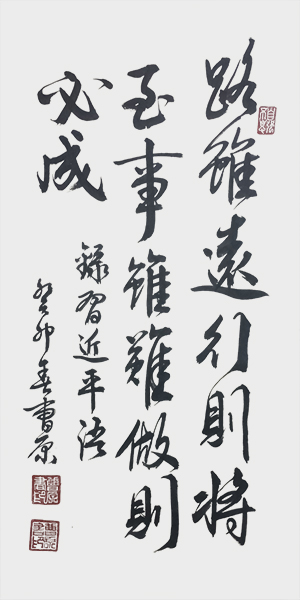 路雖遠行則將
至事雖難做則
必成
錄習近平语
癸卯春曹原